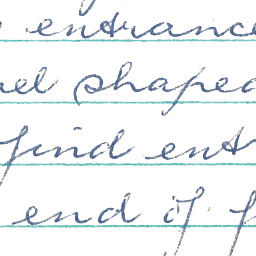 entrance
el shaped
find ent
end if f